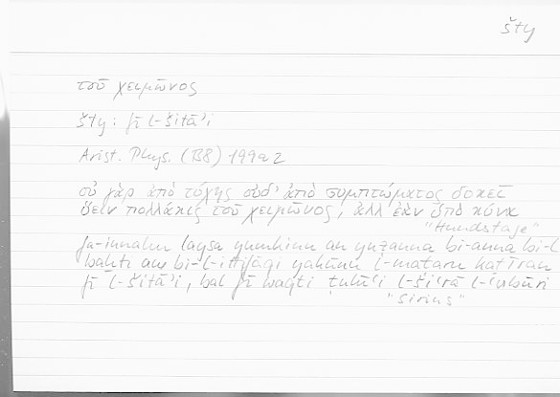 šty
τοῦ χειμῶνος
šty: fī l-šitāʾi
Arist. Phys. (B8) 199a2
οὐ γὰρ ἀπὸ τύχης οὐδ' ἀπὸ συμπτώματος δοκεῖ
ὕειν πολλάκις τοῦ χειμῶνος, ἀλλ' ἐὰν ὑπὸ κύνα
"Hundstage"
fa-innahu laysa yumkinu an yuẓanna bi-anna bi-l-
baḫti aw bi-l-ittifāqi yakūnu l-maṭaru kaṯīran
fī l-šitāʾi, bal fī waqti ṭulūʿi l-šiʿrā l-ʿubūri
"Sirius"